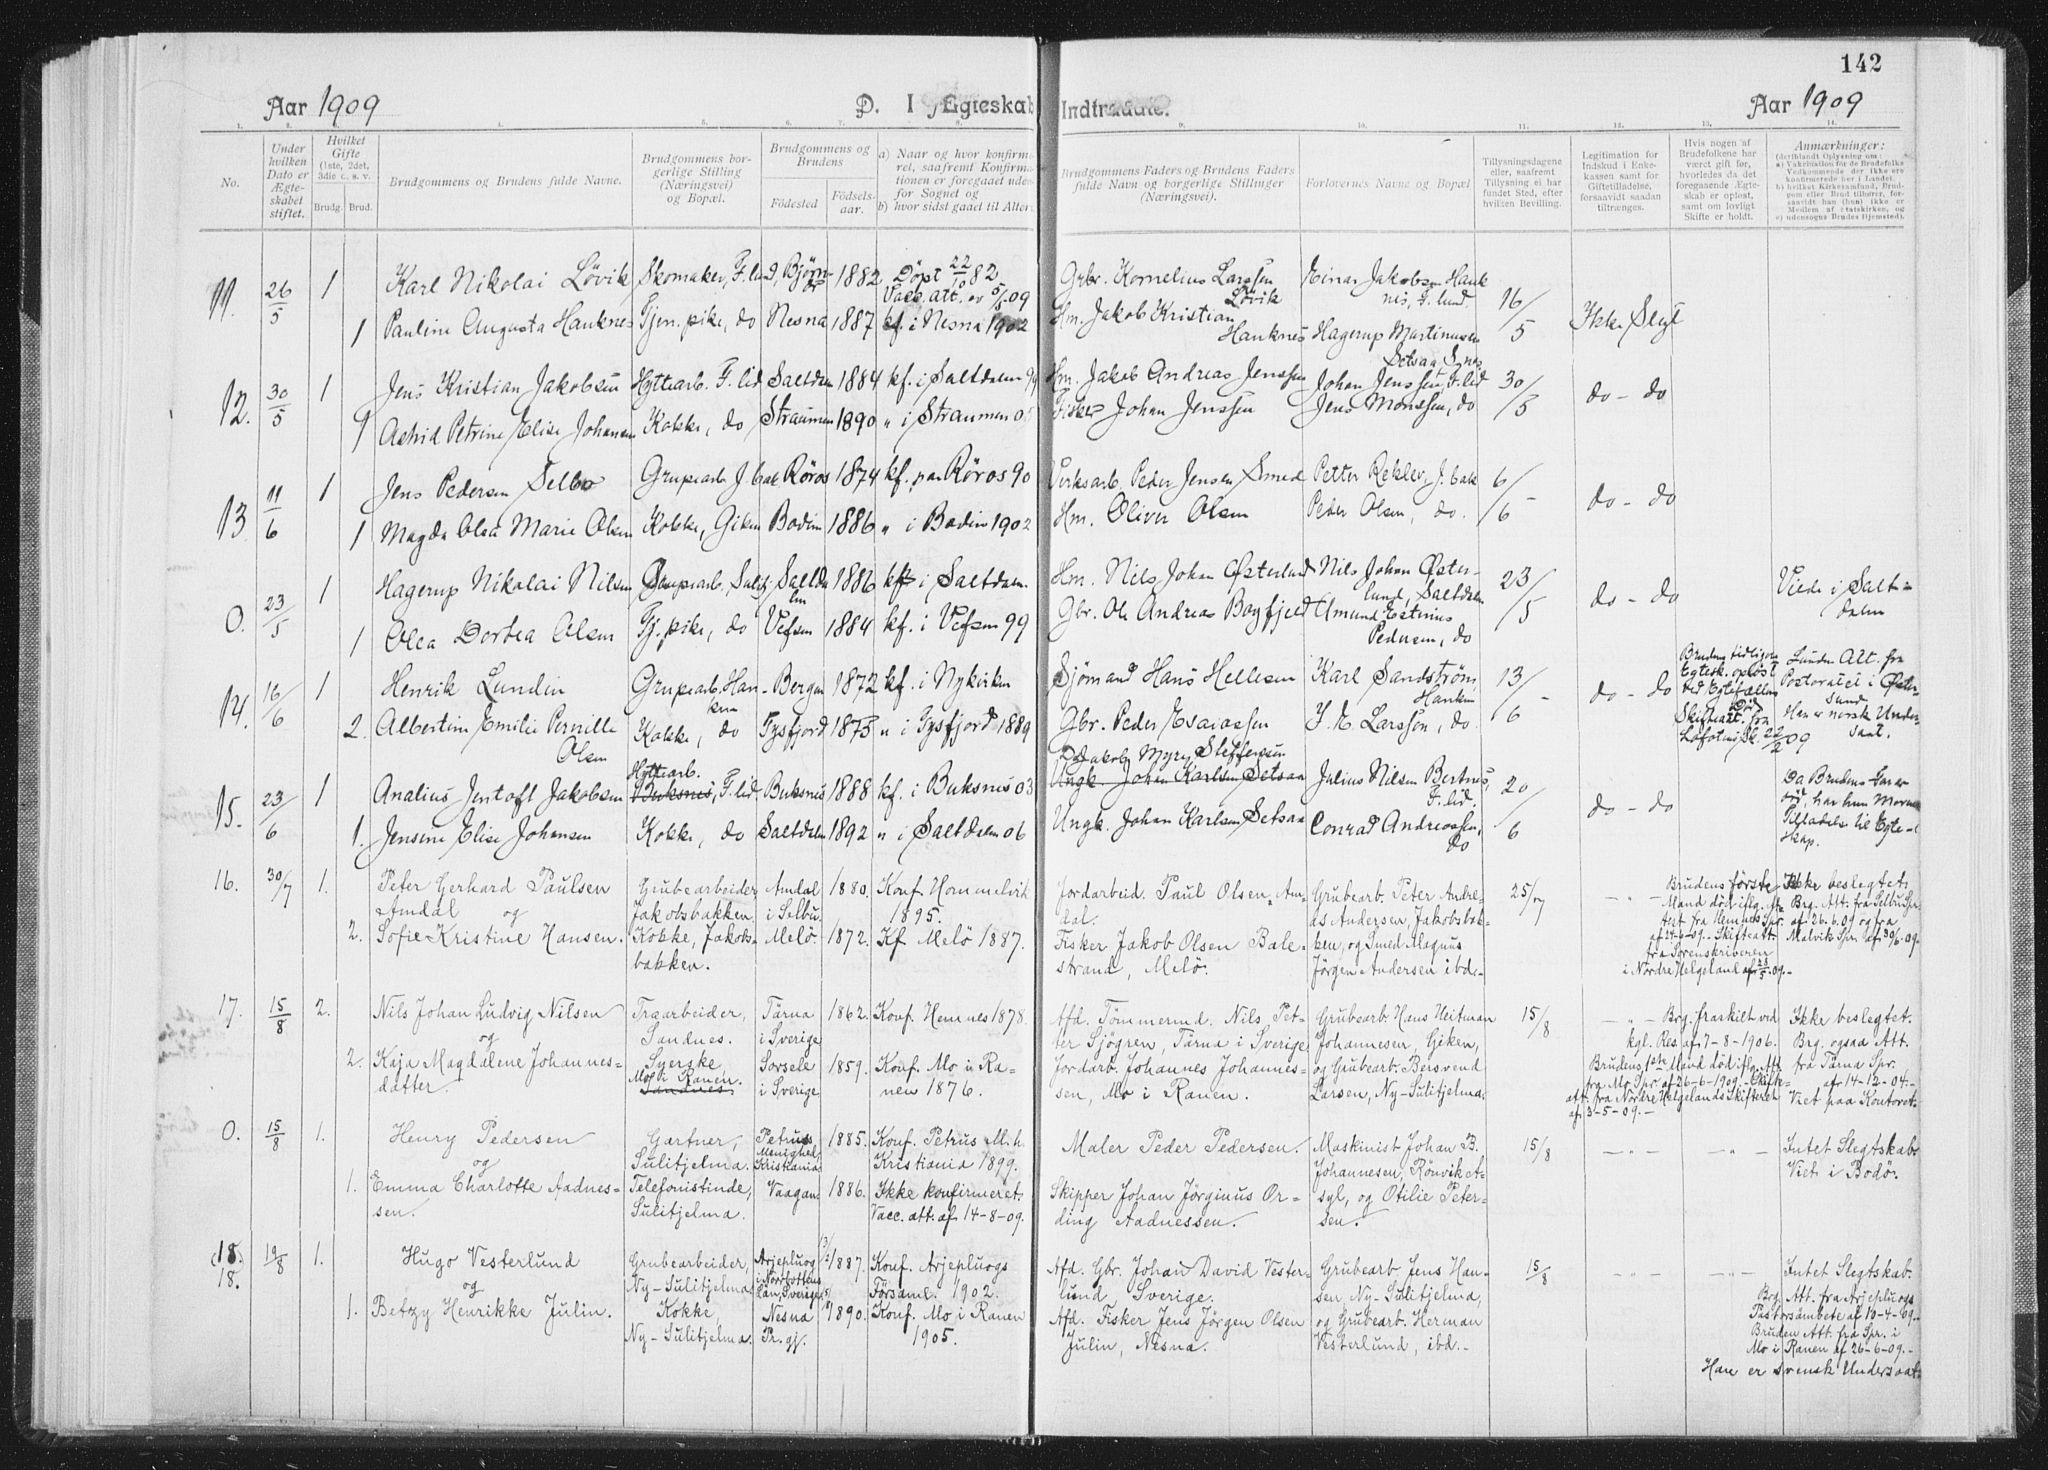 142
Aar 1909
D. I Ægteskab Indtraadte.
Aar 1909
1. 2. 3. 4. 5. 6. 7. 8. 9. 10. 11. 12. 13. 14.
No.
Under hvilken Dato er Ægteskabet stiftet.
Hvilket Gifte (1ste, 2det, 3die o. s. v.
Brudg. Brud.
Brudgommens og Brudens fulde Navne.
Brudgommens borgerlige Stilling (Næringsvei) og Bopæl.
Brudgommens og Brudens
Fødested
Fødselsaar.
a) Naar og hvor konfirmeret, saafremt Konfirmationen er foregaaet udenfor Sognet og
b) hvor sidst gaaet til Alters
Brudgommens Faders og Brudens Faders fulde Navn og borgerlige Stillinger (Næringsvei).
Forlovernes Navne og Bopæl
Tillysningsdagene eller, saafremt Tillysning ei har fundet Sted, efter hvilken Bevilling.
Legitimation for Indskud i Enkekassen samt for Giftetilladelse, forsaavidt saadan tiltrænges.
Hvis nogen af Brudefolkene har været gift før, hvorledes da det foregaaende Ægteskab er opløst, samt om lovligt Skifte er holdt.
Anmærkninger:
(deriblandt Oplysning om:
a) Vakcination for de Brudefolks Vedkommende der ikke ere konfirmerede her i Landet.
b) hvilket Kirkesamfund, Brudgom eller Brud tilhører, forsaavidt han (hun) ikke er Medlem af Statskirken, og
c) udensogns Brudes Hjemsted).
11. 26/5 1 Karl Nikolai Løvik Skomaker, F. lund, Bjørnør 1882 Døpt 22/10 82 Vacc. att. av 5/5 09
Grbr. Kornelius Larssen Løvik
Einar Jakobsen Hauknes, F. lund.
16/5 Ikke Slegt
1 Pauline Augusta Hauknes Tjen. pike, do Nesna 1887 kf. i Nesna 1902
Hm. Jakob Kristian Hauknes
Hagerup Martinussen Setsaa, S nes
12. 30/5 1 Jens Kristian Jakobsen Hyttearb. F. lid Saltdalen 1884 kf. i Saltdalen 99
Hm. Jakob Andreas Jenssen
Johan Jenssen, F. lid
30/5 do - do
1 Astrid Petrine Elise Johansen Kokke, do Straumen 1890 " i Straumen 05
Fisker Johan Jenssen
Jens Monssen, do
13 11/6 1 Jens Pedersen Selbo Grupearb. J. bak Røros 1874 kf. paa Røros 90
Verksarb. Peder Jensen Smed
Petter Reklev, J. bak
6/6 - do - do
1 Magda Olea Marie Olsen Kokke, Giken Bodin 1886 " i Bodin 1902
Hm. Oliver Olsen
Peder Olsen, do.
0. 23/5 1 Hagerup Nikolai Nilsen Grupearb. Sulitj. Saltdalen 1886 kf. i Saltdalen.
Hm. Nils Johan Østerlund
Nils Johan Østerlund, Saltdalen
23/5 do - do
Viede i Saltdalen
1 Olea Dortea Olsen Tj. pike, do Vefsen 1884 kf. i Vefsen 99
Gbr. Ole Andreas Baafjeld
Amund Estinius Pedersen, do
14. 16/6 1 Henrik Lundin Grupearb. Hanken Bergen 1872 kf. i Nykirken
Sjømand Hans Hellesen
Karl Sandstrøm, Hanken
13/6 - do - do
Brudens tidligere Egtesk. opløst ved Egtefællens Død. Skifteatt. fra Lofoten 22/2 09
Lundin Att. fra Pastoratet i Østersund
Han er norsk Undersaat.
2. Albertine Emilie Pernille Olsen Kokke, do Tysfjord 1873 " i Tysfjord 1889
Gbr. Peder Esaiassen
J. E. Larssen, do.
15. 23/6 1 Analius Jentoft Jakobsen Hyttearb. Buksnes, F. lid Buksnes 1888 kf. i Buksnes 03
Jakob Myry Steffensen
Ungk. Johan Karlsen Setsaa
Julius Nilsen Bertnes, F. lid.
20/6 do - do
Da Brudens Far er død, har hun Morens Tilladelse til Egteskap.
1. Jensine Elise Johansen Kokke, do Saltdalen 1892 " i Saltdalen 06
Ungk. Johan Karlsen Setsaa
Conrad Andreassen, do
16. 30/7 1. Peter Gerhard Paulsen Amdal og
Grubearbeider Jakobsbakken.
Amdal i Selbu.
1880. Konf. Hommelvik 1895.
Jordarbeid. Paul Olsen Amdal.
Grubearb. Peter Andreas Andersen, Jakobsbakken, og Smed Magnus Jörgen Andersen ibd.
25/7 - " -
Brudens förste Mand död iflg. Attest fra Hemnes Spr. af 24-6-09. Skifteatt. fra Sorenskriveren i Nordre Helgeland af 28/5-09.-
Ikke beslegtet.
Brg. Att. fra Selbu Spr. af 26.6.09 og fra Malvik Spr. af 30/6.09.
2. Sofie Kristine Hansen. Kokke, Jakobsbakken. Melö 1872. Kf. Melö 1887.
Fisker Jakob Olsen Balestrand, Melö.
17. 15/8 2. Nils Johan Ludvig Nilsen og
Traarbeider, Sandnes.
Tärna i Sverige
1862. Konf. Hemnes 1878.
Afd. Tömmermd. Nils Petter Sjögren, Tärna i Sverige
Grubearb. Hans Heitman Johannesen, Giken, og Grubearb. Bersvend Larsen, Ny-Sulitjelma.
15/8 - " -
Brg. fraskilt ved kgl. Res. af 7-8-1906.
Brudens 1ste Mand död iflg. Att. fra Mo Spr. af 26-6-1909.- Skifteatt. fra Nordre Helgelands Skifteret af 3-5-09.-
Ikke beslegtet.
Brg. ogsaa Att. fra Tärna Spr. af 14-12-04.-
Viet paa Kontoret.
2. Kaja Magdalene Johannesdatter
Syerske, Mo i Ranen. Sandnes.
Sorsele i Sverige
1859. Konf. Mo i Ranen 1876.
Jordarb. Johannes Johannessen, Mo i Ranen.
0. 15/8 1. Henry Pedersen og
Gartner, Sulitjelma.
Petrus Menighed, Kristiania
1885. Konf. Petrus M.h. Kristiania 1899.
Maler Peder Pedersen.
Maskinist Johan B. Johannesen, Rönvik Asyl, og Otilie Petersen.
15/8 - " - - " -
Intet Slegtskab.
Viet i Bodö.
1. Emma Charlotte Aadnessen.
Telefonistinde, Sulitjelma.
Vaagan 1886. Ikke konfirmeret. Vacc. att. af 14-8-09.
Skipper Johan Jörginus Ording Aadnessen.
(18.) 18. 19/8 1. Hugo Vesterlund og
Grubearbeider, Ny-Sulitjelma
Arjepluog i Norrbottens län, Sverige
1887. Konf. Arjepluogs Församl. 1902.
Afd. Gbr. Johan David Vesterlund, Sverige.
Grubearb. Jens Hansen, Ny-Sulitjelma, og Grubearb. Herman Vesterlund, ibd.-
15/8 - " - - " -
Intet Slegtskab.
Brg. Att. fra Arjepluogs Pastorsämbete af 10-4-09.-
Bruden Att. fra Spr. i Mo i Ranen af 26-6-09.-
Han er svensk Undersaat.
1. Betzy Henrikke Julin.
Kokke, Ny-Sulitjelma.
Nesna Pr. gj.
1890. Konf. Mo i Ranen 1905.
Afd. Fisker Jens Jörgen Olsen Julin, Nesna.